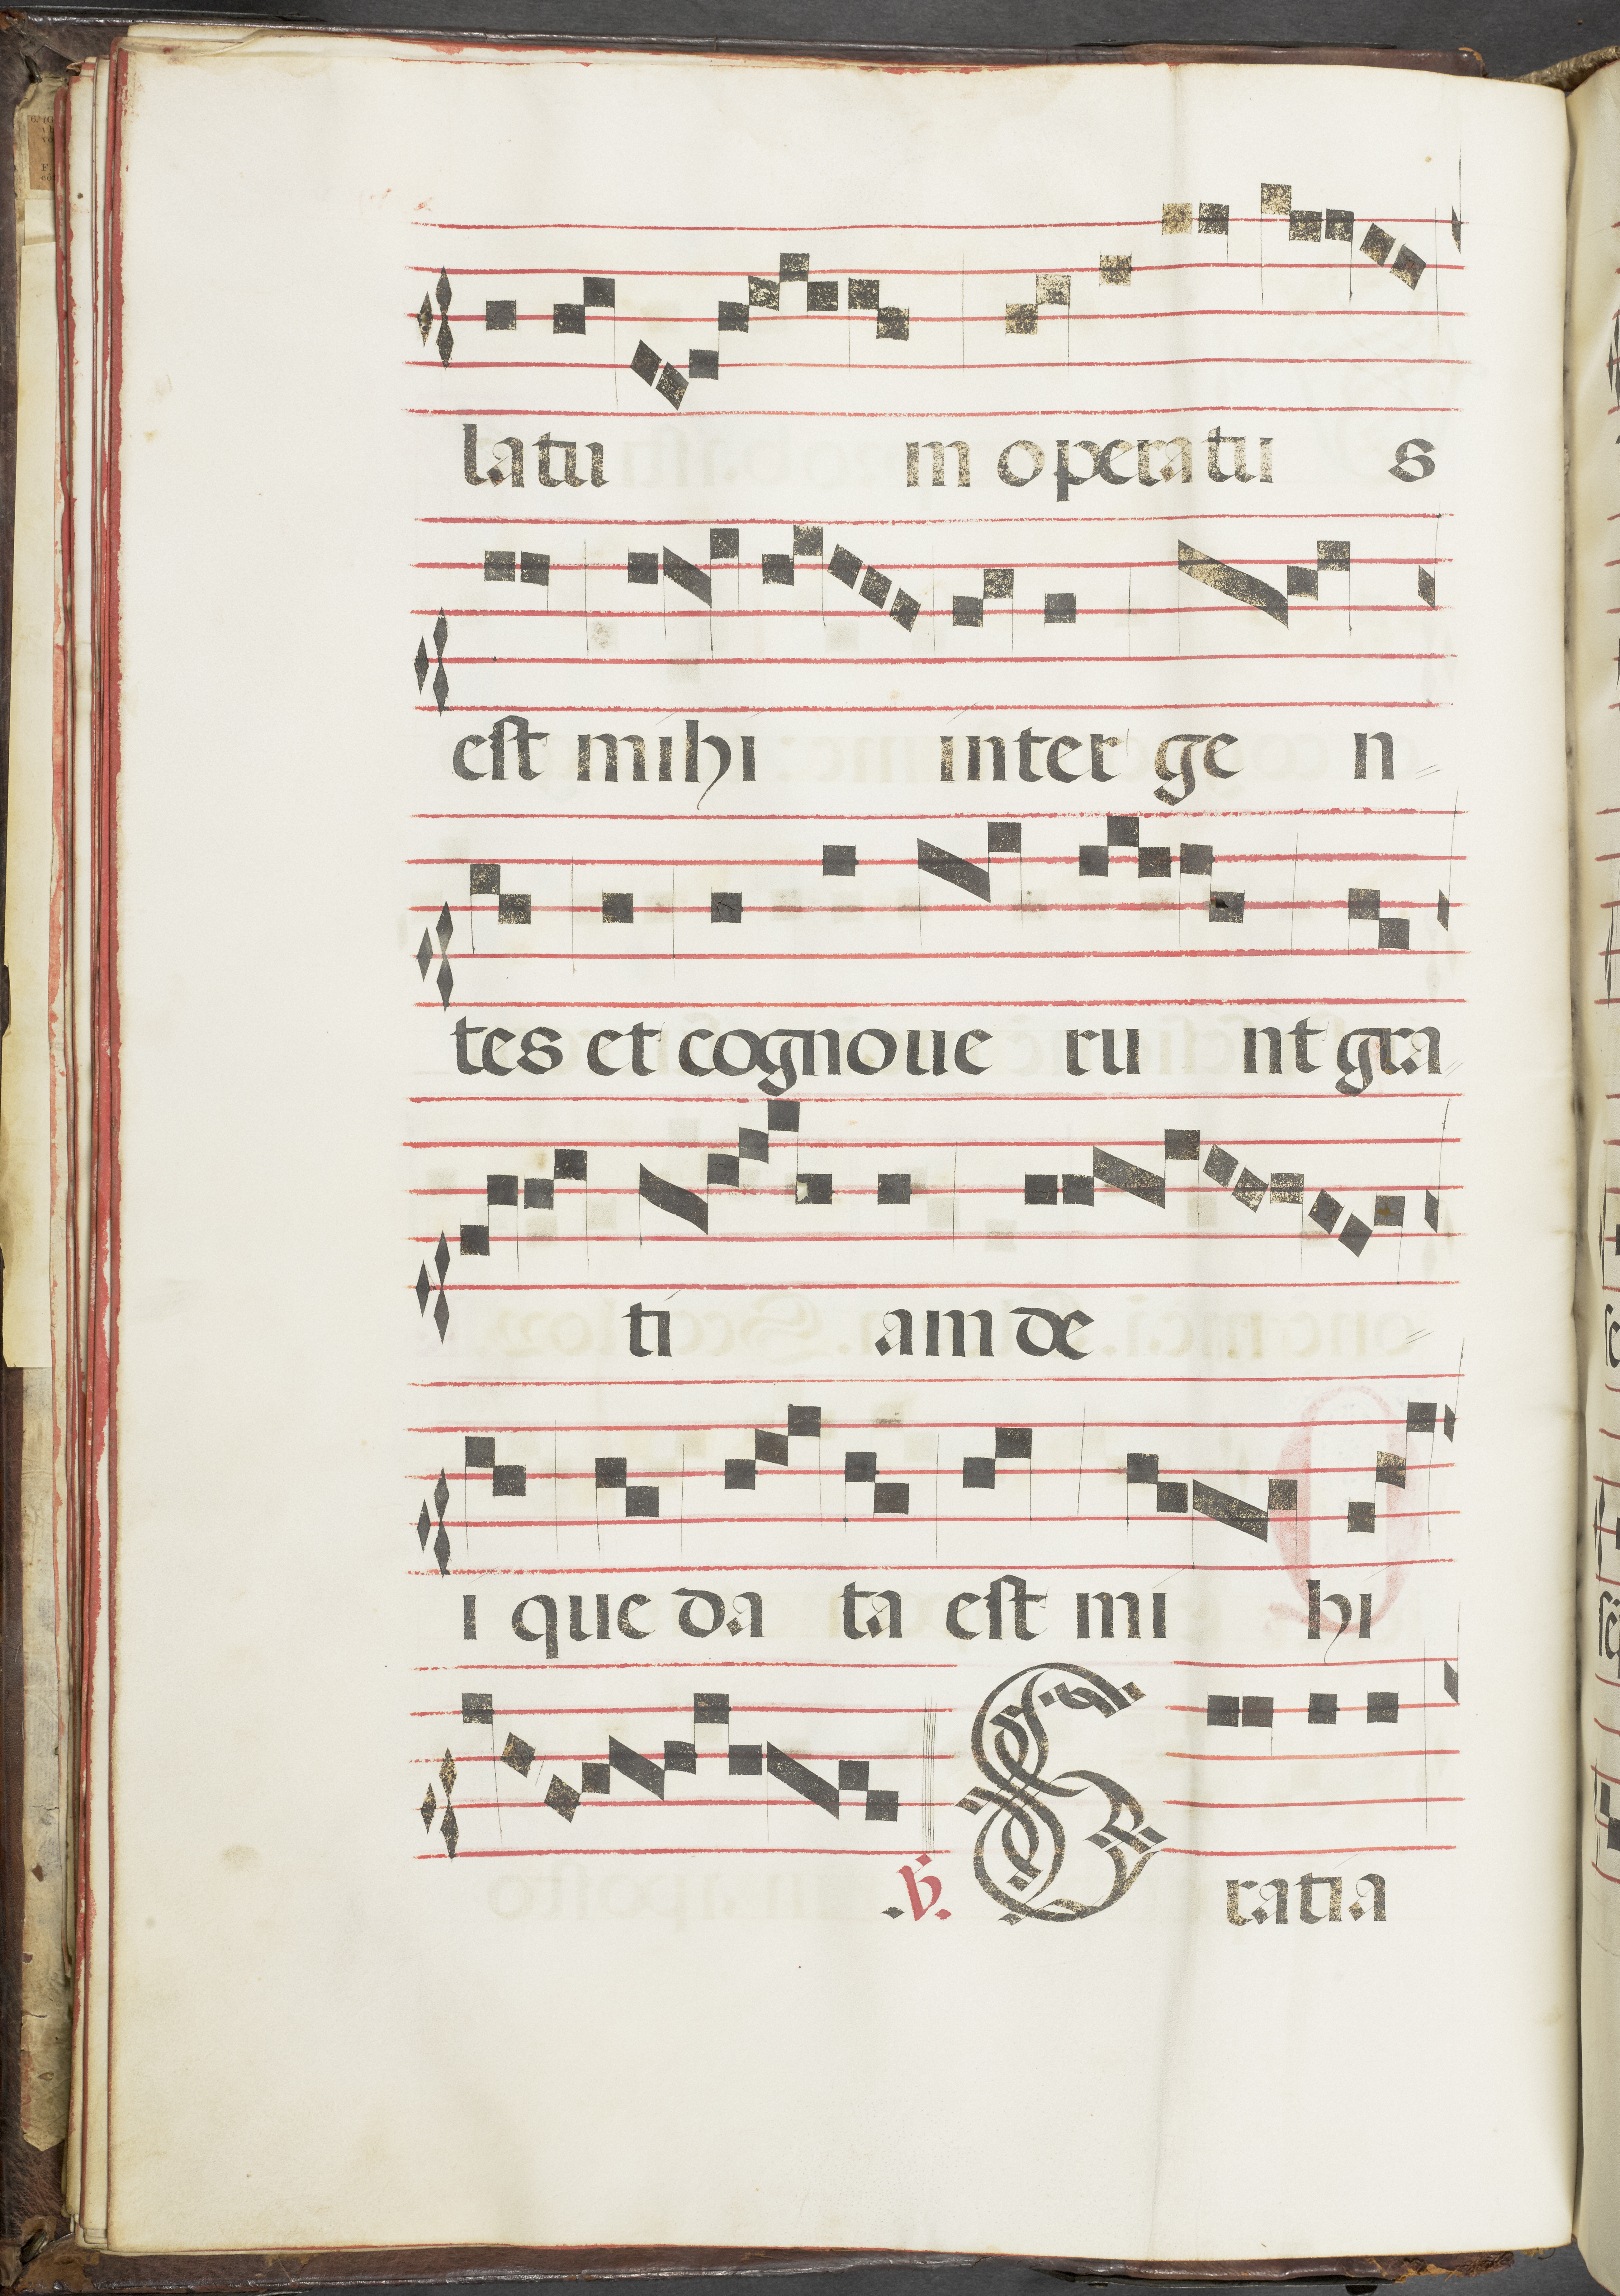 latu m operatu s
est mihi inter ge n
tes et cognoue ru nt gra
ti am de
i que da ta est mi hi
.V. Gratia